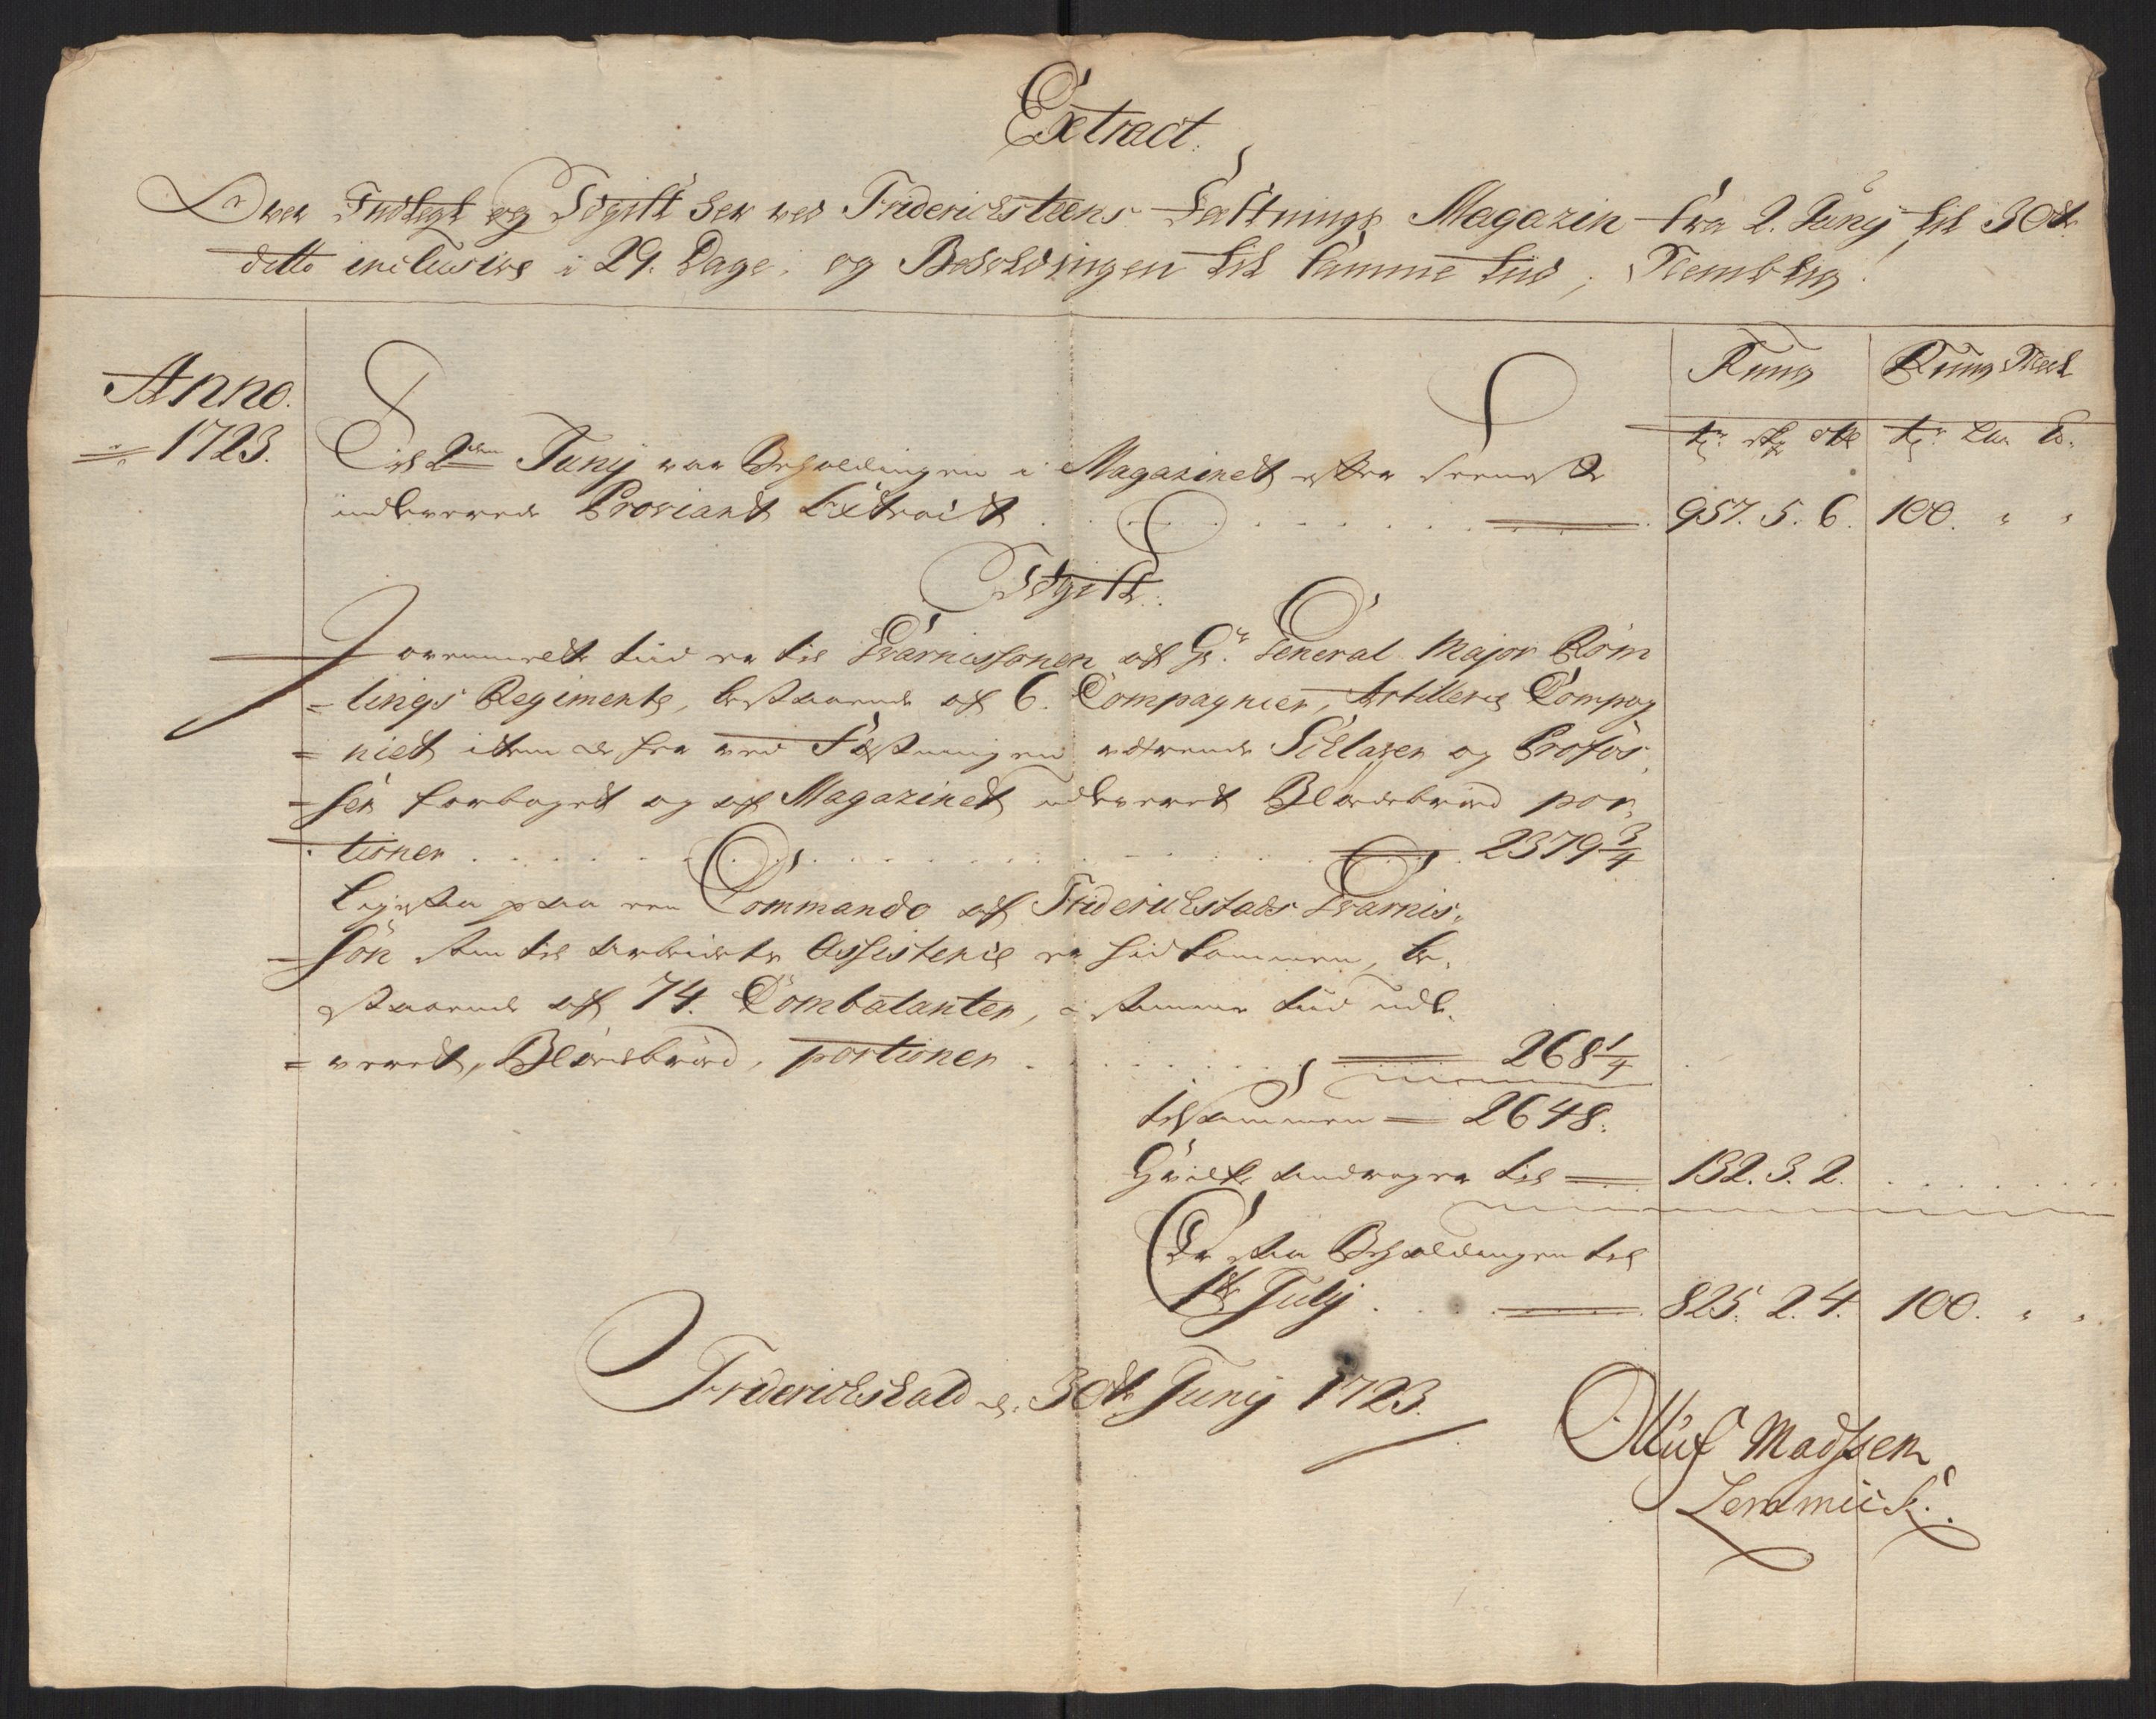 Extract.
Over Indtegt og Udgift her ved Friderichsteens Fæstnings Magazin fra 2. Junij til 30te
ditto inclusive i 29. Dage, og Beholdningen til samme tiid, Nembling.
Anno.
1723.
Rung Rung Meel
tr: skp ott tr: Lis. tb.
Til 2den Junij var Beholdningen i Magazinet efter seeneste
indleverede Proviant Extract . . . 957. 5. 6. 100. " "
Udgift.
I ovenmelte tiid er til Guarnissonen af Hr. General Major Røm
= lings Regimente, bestaaende af 6. Compagnier, Artillerie Compag
= niet item de her ved Fæstningen værende Sclaver og Profos,
= ser forbaget og af Magazinet udleveret Blødebrød por,
tioner . . . 2379 3/4
Ligesaa paa een Commando af Friderichstads Guarnis,
= son som til Arbeidets Assistence er hidkommen, be,
staaende af 74. Combatanter, i samme tiid udle,
= veret, Blødebrød, portioner . . . 268 1/4
tilsammen = 2648.
Hvilke andrager til = 132. 3. 2. . . .
Er saa Beholdningen til
1te Julij . . . 825. 2. 4. 100. " "
Friderichshald d. 30te Junij 1723.
Olluf Madssen
Lemmiick.